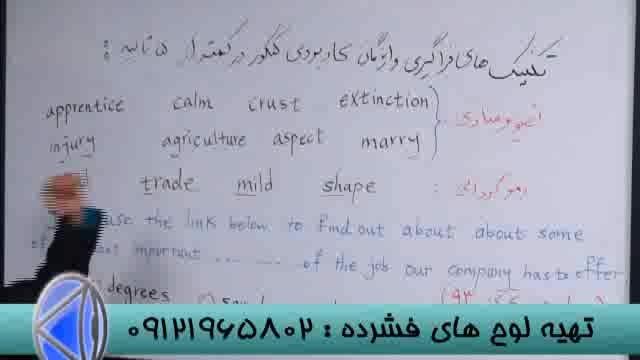 تکنیک های فراگیری واژگان کاربردی کنکور در کمتر از ۵ ثانیه :
apprentice calm crust extinction
injury agriculture aspect marry
trade mild shape
use the link below to find out about about some
important .......... of the job our company has to offer
degrees
تهیه لوح های فشرده : ۰۹۱۲۱۹۶۵۸۰۲